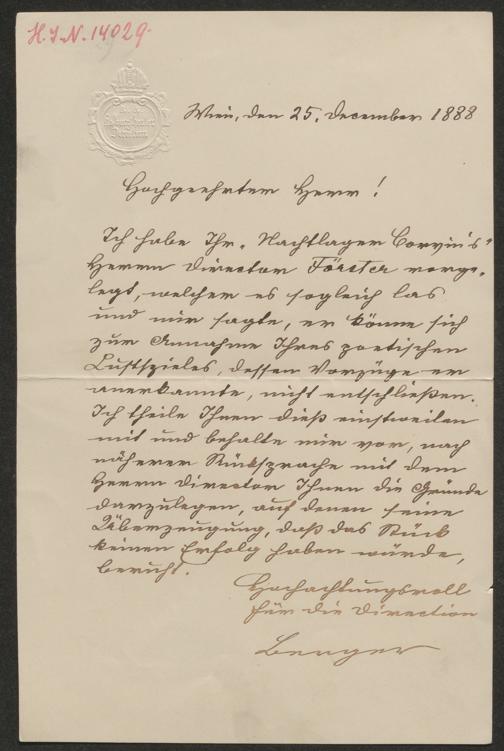 H.I.N. 14029.
Wien, den 25. December 1888
Hochgeehrter Herr!
Ich habe Ihr „Nachtlager Corvins"
Herrn Director Förster vorge-
legt, welcher es sogleich las
und mir sagte, er könne sich
zur Annahme Ihres poetischen
Lustspieles, dessen Vorzüge er
anerkannte, nicht entschließen.
Ich theile Ihnen dieß einstweilen
mit und behalte mir vor, nach
näherer Rücksprache mit dem
Herrn Director Ihnen die Gründe
darzulegen, auf denen seine
Überzeugung, daß das Stück
keinen Erfolg haben würde,
beruht.
Hochachtungsvoll
für die Direction
Berger